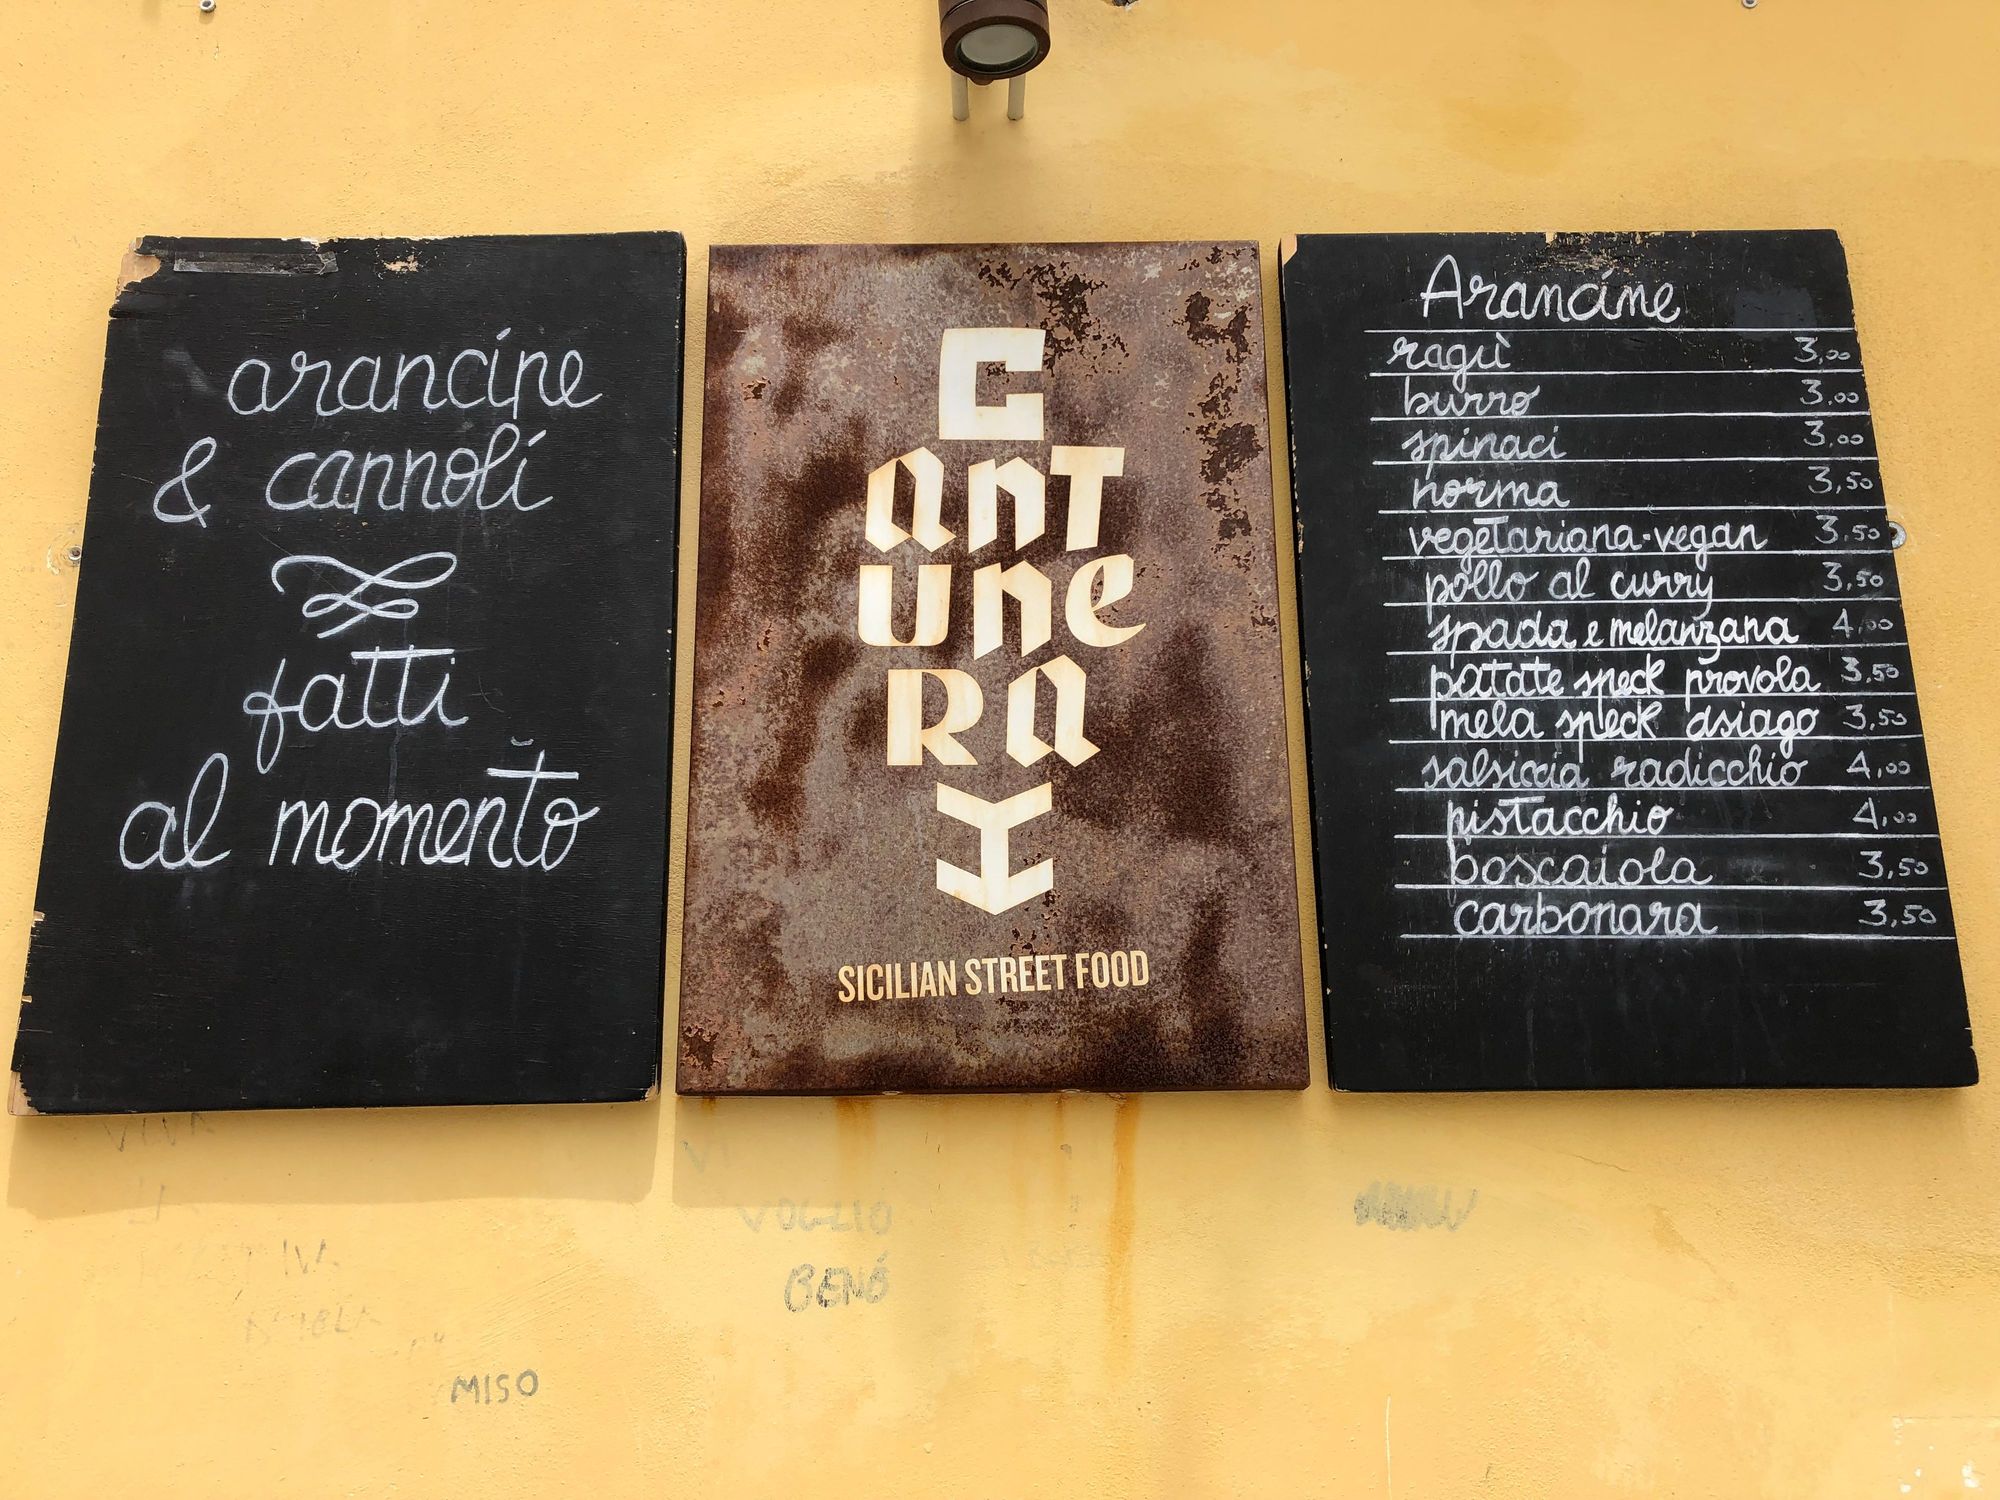 arancine
& cannoli
fatti
al momento
C
anT
une
Ra
SICILIAN STREET FOOD
Arancine
ragù 3,00
burro 3,00
spinaci 3,00
norma 3,50
vegetariana-vegan 3,50
pollo al curry 3,50
spada e melanzana 4,00
patate speck provola 3,50
mela speck asiago 3,50
salsiccia radicchio 4,00
pistacchio 4,00
boscaiola 3,50
carbonara 3,50
VIVA
VOGLIO
BENE
MISO